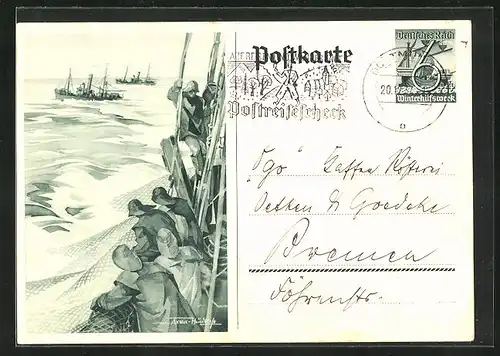 Postkarte
Deutsches Reich
6
Winterhilfswerk
AUF RE
Postreisescheck
20.
"Ogo" Kaffee Rösterei
Oetken & Goedeke
Bremen
Föhrenstr.